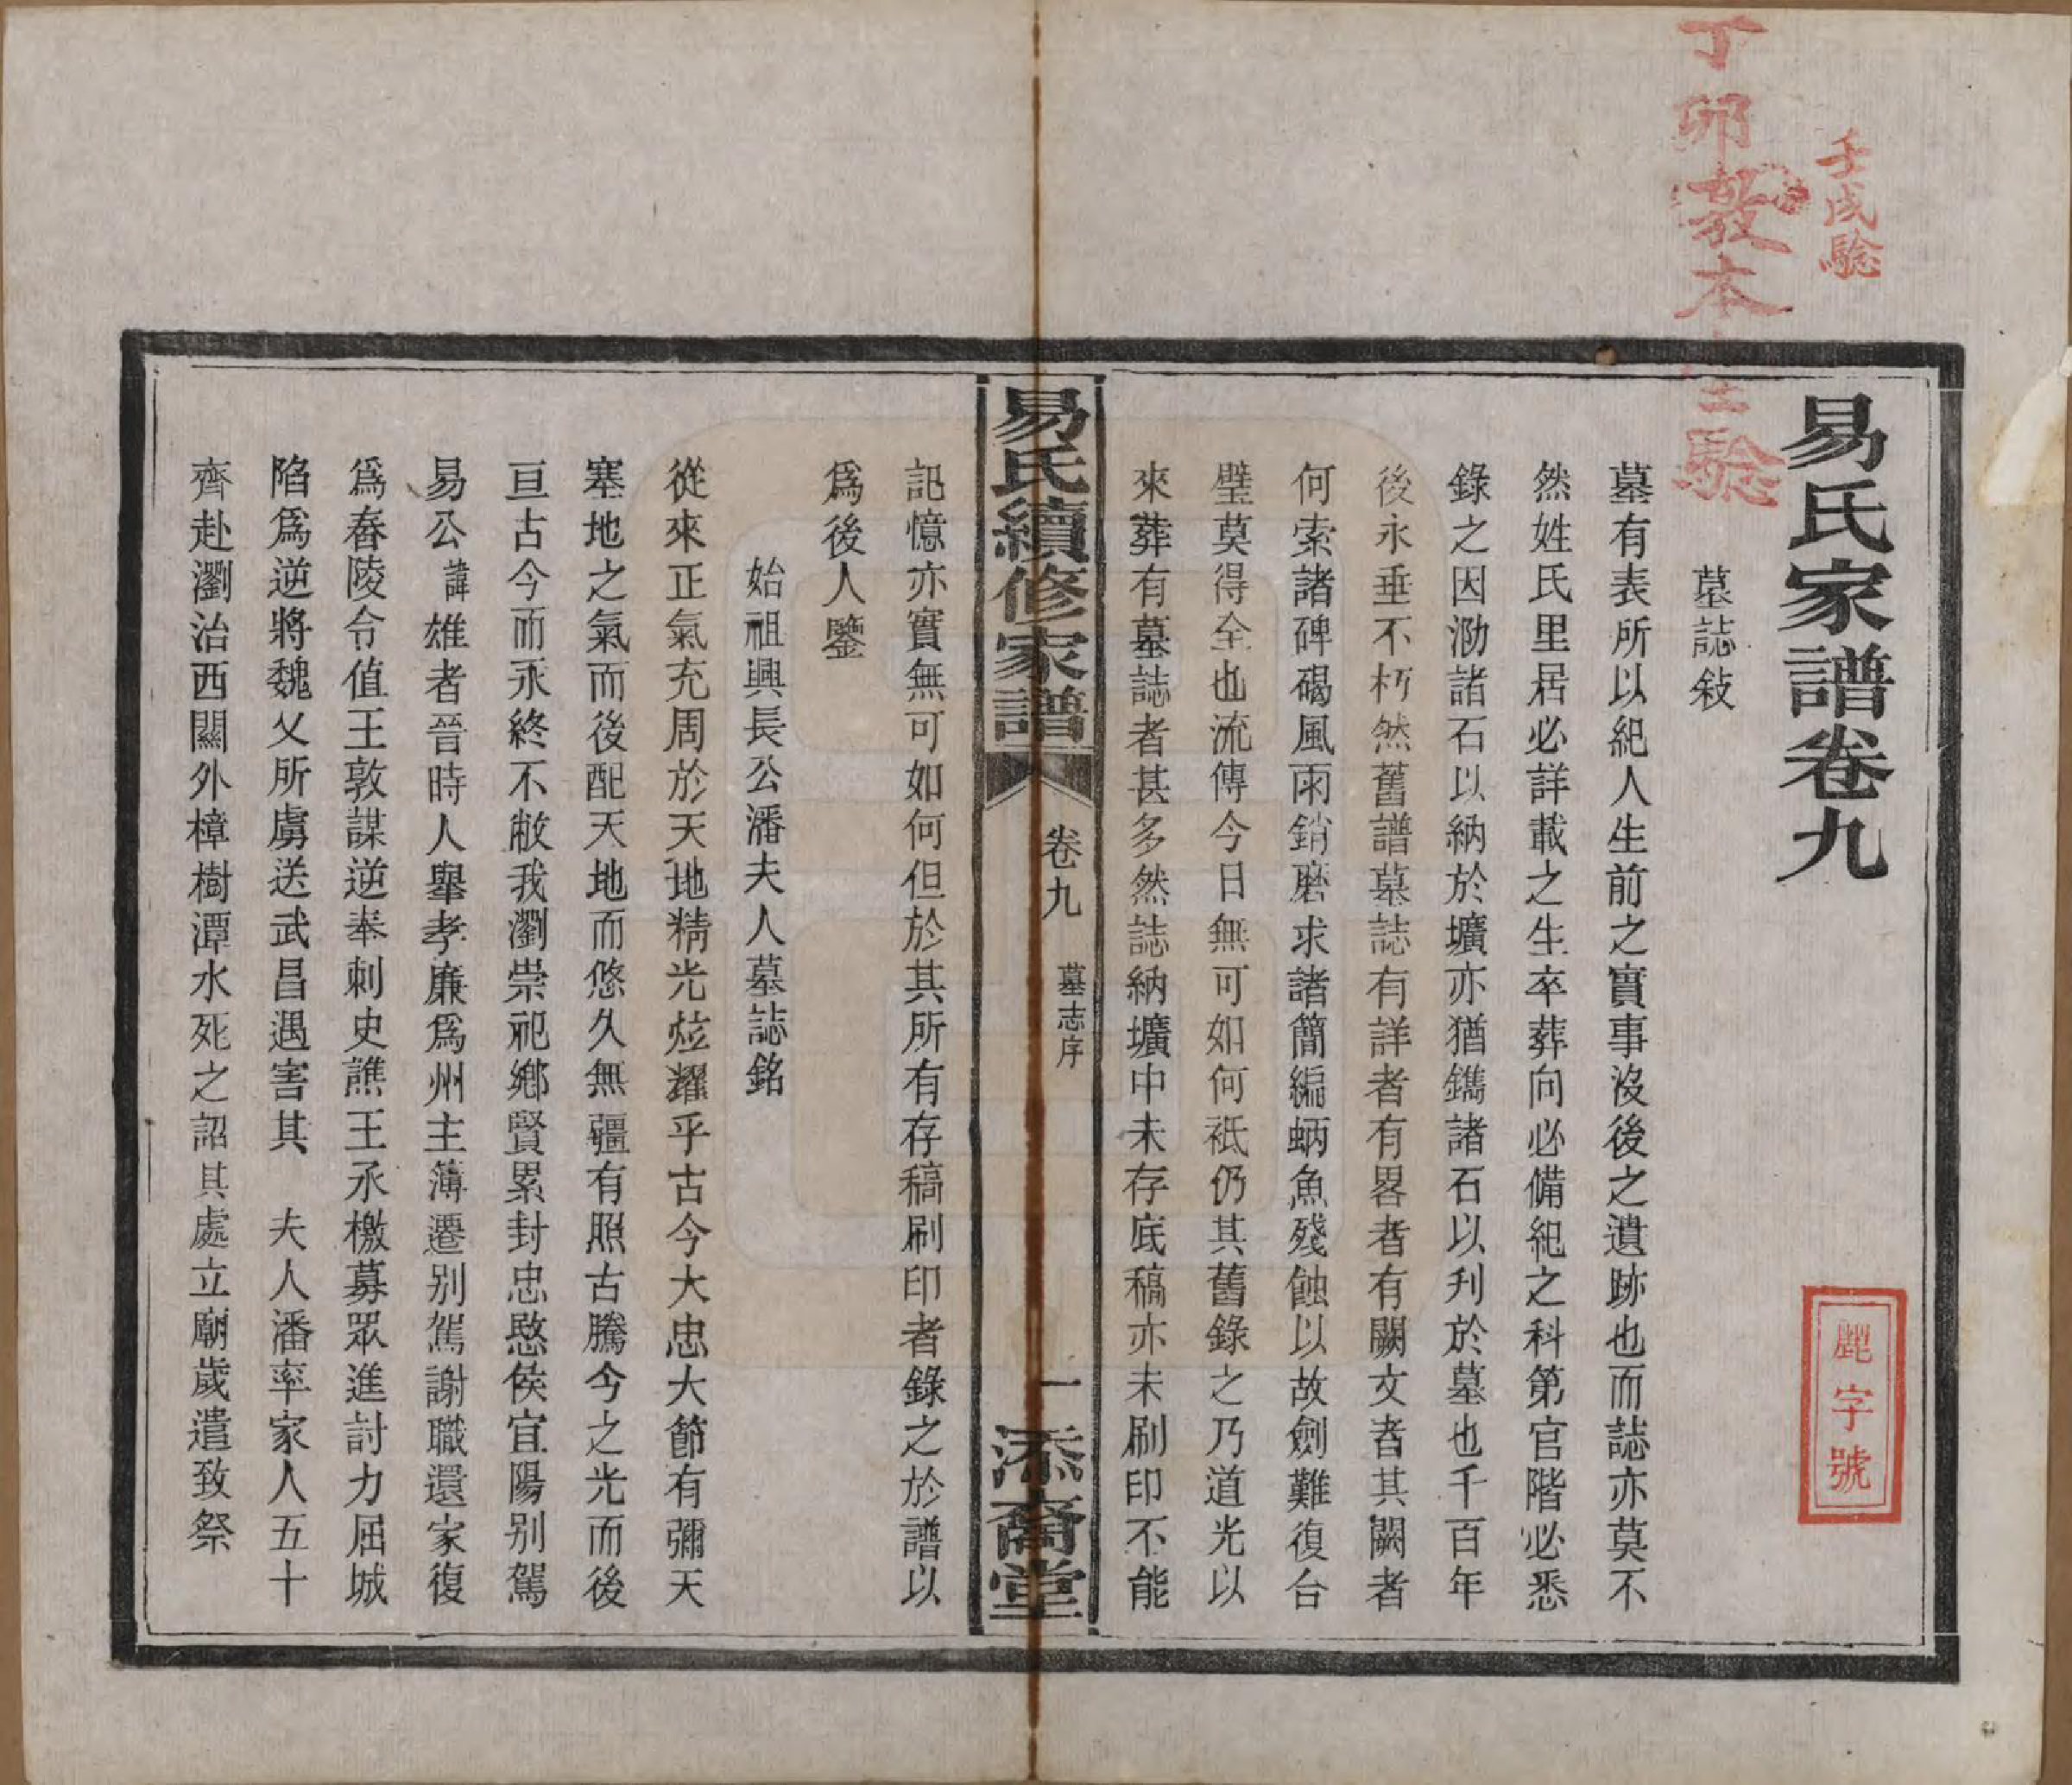 壬戌驗
丁卯
本
驗
易氏家譜卷九
麗字號
墓誌敍
墓有表所以紀人生前之實事沒後之遺跡也而誌亦莫不
然姓氏里居必詳載之生卒葬向必備紀之科第官階必悉
錄之因泐諸石以納於壙亦猶鐫諸石以刋於墓也千百年
後永垂不朽然舊譜墓誌有詳者有畧者有闕文者其闕者
何索諸碑碣風雨銷磨求諸簡編蛃魚殘蝕以故劍難復合
璧莫得全也流傳今日無可如何祇仍其舊錄之乃道光以
來葬有墓誌者甚多然誌納壙中未存底稿亦未刷印不能
易氏續修家譜
卷九
墓志序
一
添裔堂
記憶亦實無可如何但於其所有存稿刷印者錄之於譜以
爲後人鑒
始祖興長公潘夫人墓誌銘
從來正氣充周於天地精光炫耀乎古今大忠大節有彌天
塞地之氣而後配天地而悠久無疆有照古騰今之光而後
亘古今而永終不敝我瀏崇祀鄉賢累封忠愍侯宜陽别駕
易公諱雄者晉時人舉孝廉爲州主簿遷别駕謝職還家復
爲舂陵令值王敦謀逆奉刺史譙王承檄募眾進討力屈城
陷爲逆將魏乂所虜送武昌遇害其　夫人潘率家人五十
齊赴瀏治西關外樟樹潭水死之詔其處立廟歲遣致祭